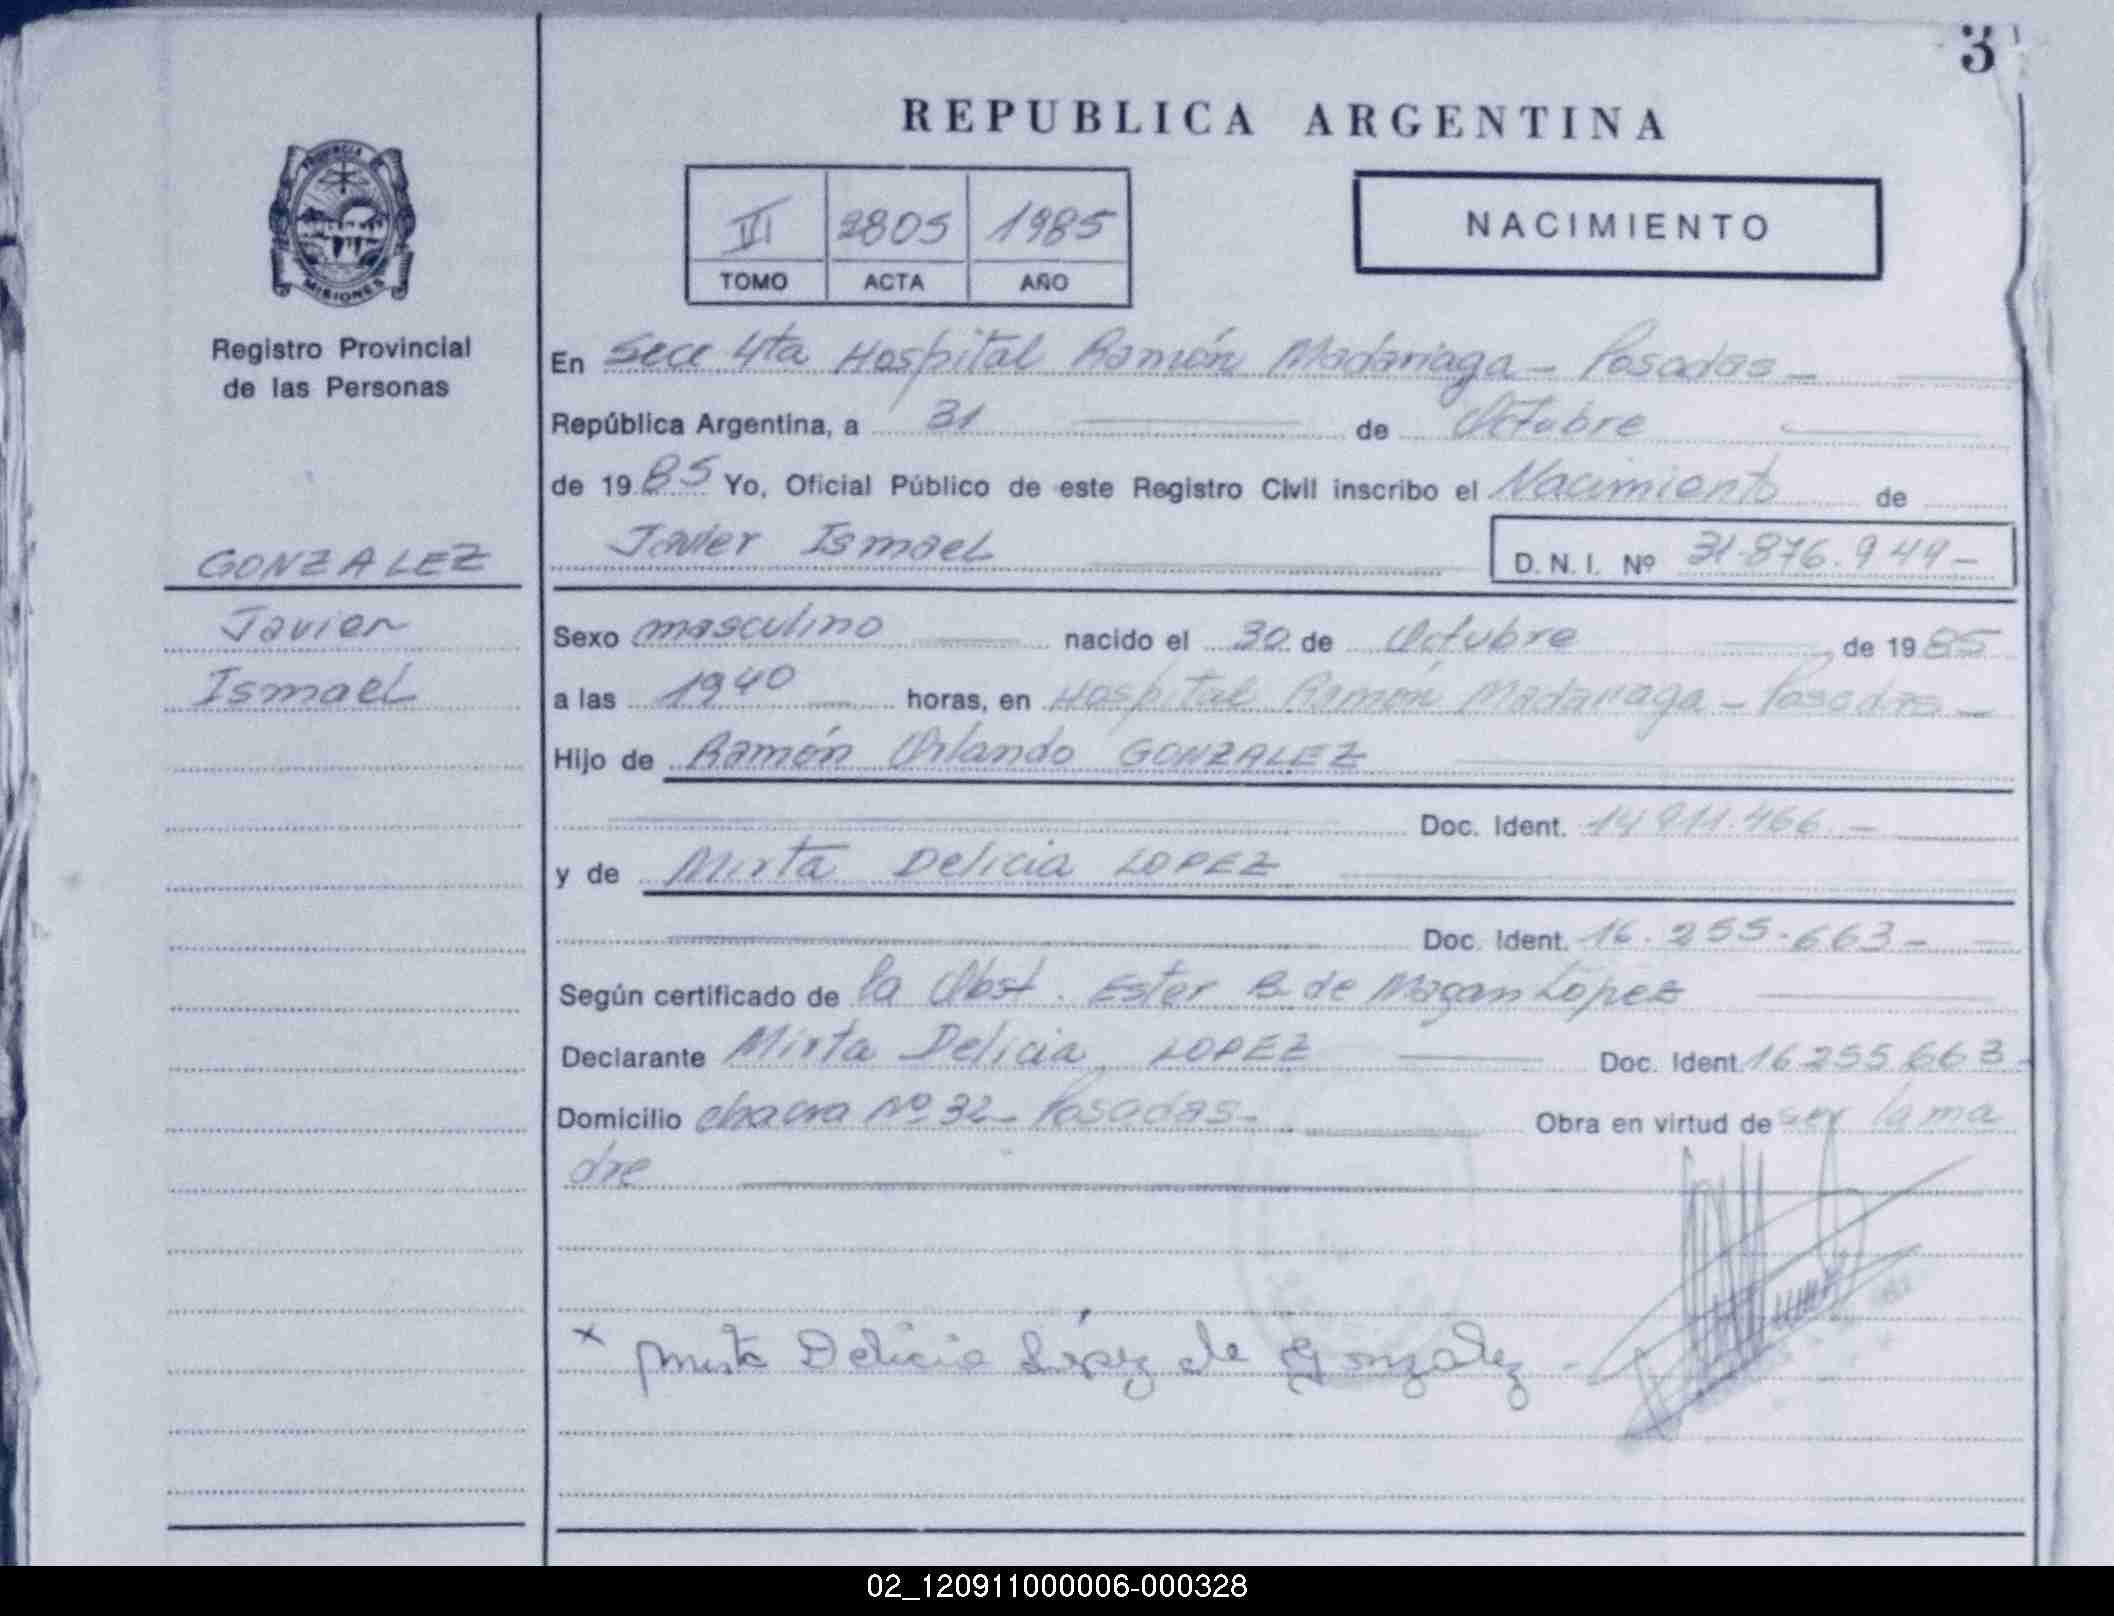 3
REPUBLICA ARGENTINA
PROVINCIA DE
MISIONES
Registro Provincial
de las Personas
VI 2805 1985
TOMO ACTA AÑO
NACIMIENTO
En Secc 4ta Hospital Ramón Madariaga - Posadas -
República Argentina, a 31 de Octubre
de 19 85 Yo, Oficial Público de este Registro Civil inscribo el Nacimiento de
Javier Ismael D.N.I. Nº 31.876.949-
GONZALEZ
Javier
Ismael
Sexo masculino nacido el 30 de Octubre de 19 85
a las 1940 horas, en Hospital Ramón Madariaga - Posadas -
Hijo de Ramón Orlando GONZALEZ
Doc. Ident. 14.911.466.-
y de Mirta Delicia LOPEZ
Doc. Ident. 16.255.663-
Según certificado de la Obst. Ester B. de Magan López
Declarante Mirta Delicia LOPEZ Doc. Ident. 16255663-
Domicilio chacra Nº 32 - Posadas - Obra en virtud de ser la ma
dre
x Mirta Delicia López de González
02_120911000006-000328